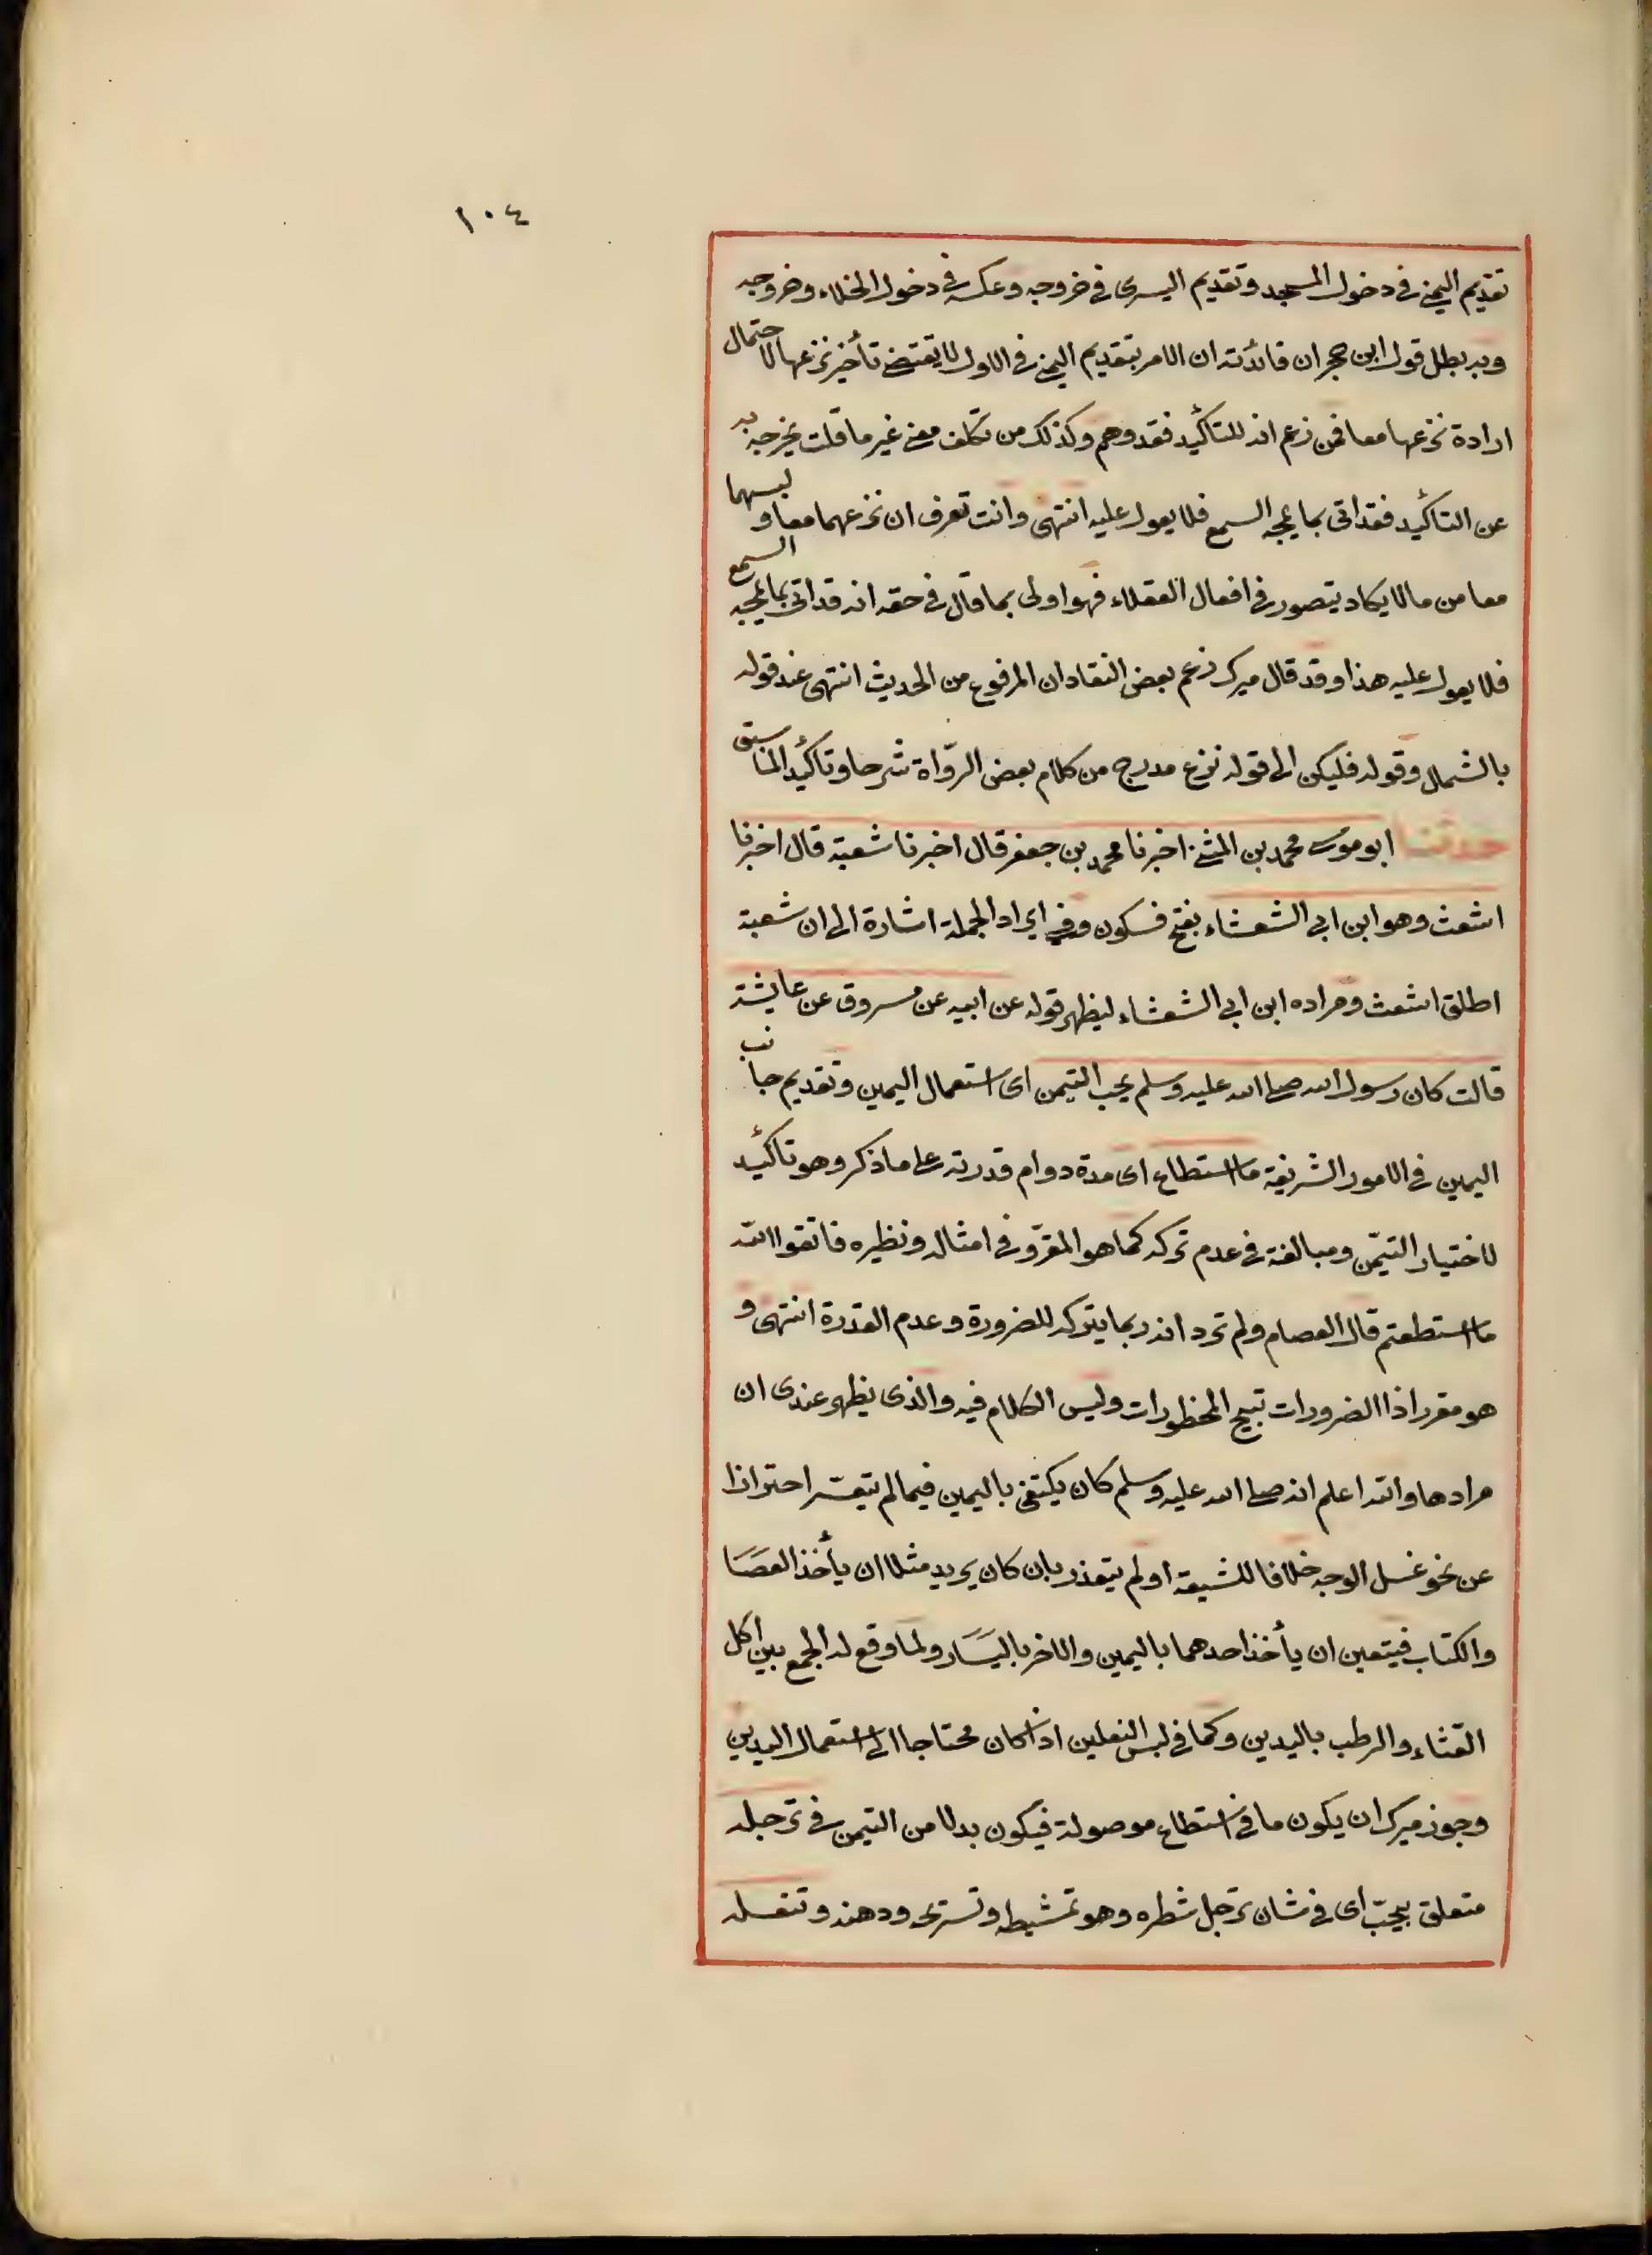 ١٠٤
تقديم اليمنى في دخول المسجد وتقديم اليسرى في خروجه وعكسه في دخول الخلاء وخروجه
وبه بطل قول ابن حجر ان فائدته ان الامر بتقديم اليمنى في الاول لا يقتضي تأخير نزعها لاحتمال
ارادة نزعهما معا فمن زعم انه للتأكيد فقد وهم وكذلك من تكلف معنى غير ما قلت يخرجه به
عن التأكيد فقد اتى بما يمجه السمع فلا يعول عليه انتهى وانت تعرف ان نزعهما معا ولبسهما
معا من ما لا يكاد يتصور في افعال العقلاء فهو اولى بما قال في حقه انه قد اتى بما يمجه السمع
فلا يعول عليه هذا وقد قال ميرك زعم بعض النقاد ان المرفوع من الحديث انتهى عند قوله
بالشمال وقوله فليكن الى قوله نزع مدرج من كلام بعض الرّواة شرحا وتأكيدا لما سبق
حدثنا ابو موسى محمد بن المثنى اخبرنا محمد بن جعفر قال اخبرنا شعبة قال اخبرنا
اشعث وهو ابن ابي الشعثاء بفتح فسكون وفي ايراد الجملة اشارة الى ان شعبة
اطلق اشعث ومراده ابن ابي الشعثاء ليظهر قوله عن ابيه عن مسروق عن عايشة
قالت كان رسول الله صلى الله عليه وسلم يحب التيمن اى استعمال اليمين وتقديم جانب
اليمين في الامور الشريفة ما استطاع اى مدة دوام قدرته على ما ذكر وهو تأكيد
لاختيار التيمّن ومبالغة في عدم تركه كما هو المقرّر في امثاله ونظيره فاتقوا الله
ما استطعتم قال العصام ولم ترد انه ربما يتركه للضرورة وعدم القدرة انتهى و
هو مقرر اذا الضرورات تبيح المحظورات وليس الكلام فيه والذى يظهر عندى ان
مرادها والله اعلم انه صلى الله عليه وسلم كان يكتفى باليمين فيما لم يتعسّر احترازا
عن نحو غسل الوجه خلافا للشيعة او لم يتعذر بان كان يريد مثلا ان يأخذ العصَا
والكتاب فيتعين ان يأخذ احدهما باليمين والاخر باليسَار ولما وقع له الجمع بين اكل
القثاء والرطب باليدين وكما في لبس النعلين اذا كان محتاجا الى استعمال اليدين
وجوز ميرك ان يكون ما في استطاع موصولة فيكون بدلا من التيمن في ترجله
متعلق بيحبّ اى في شان ترجل شطره وهو تمشيطه وتسريحه ودهنه وتنعله